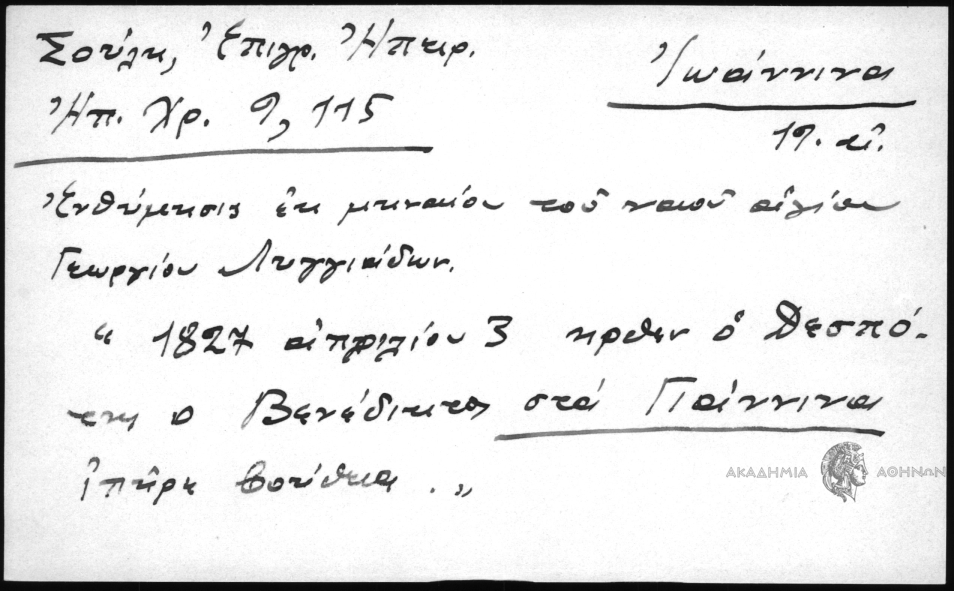 Σούλη, Ἐπιγρ. Ἠπειρ.
Ἰωάννινα
Ἠπ. Χρ. 9, 115
19. αἰ.
Ἐνθύμησις ἐκ μηναίου τοῦ ναοῦ ἁγίου
Γεωργίου Λυγγιάδων.
" 1827 ἀπριλίου 3 ηρθεν ὁ Δεσπό-
της ο Βενέδικτος στά Γιάννινα
ἰπῆρε
ΑΚΑΔΗΜΙΑ ΑΘΗΝΩΝ